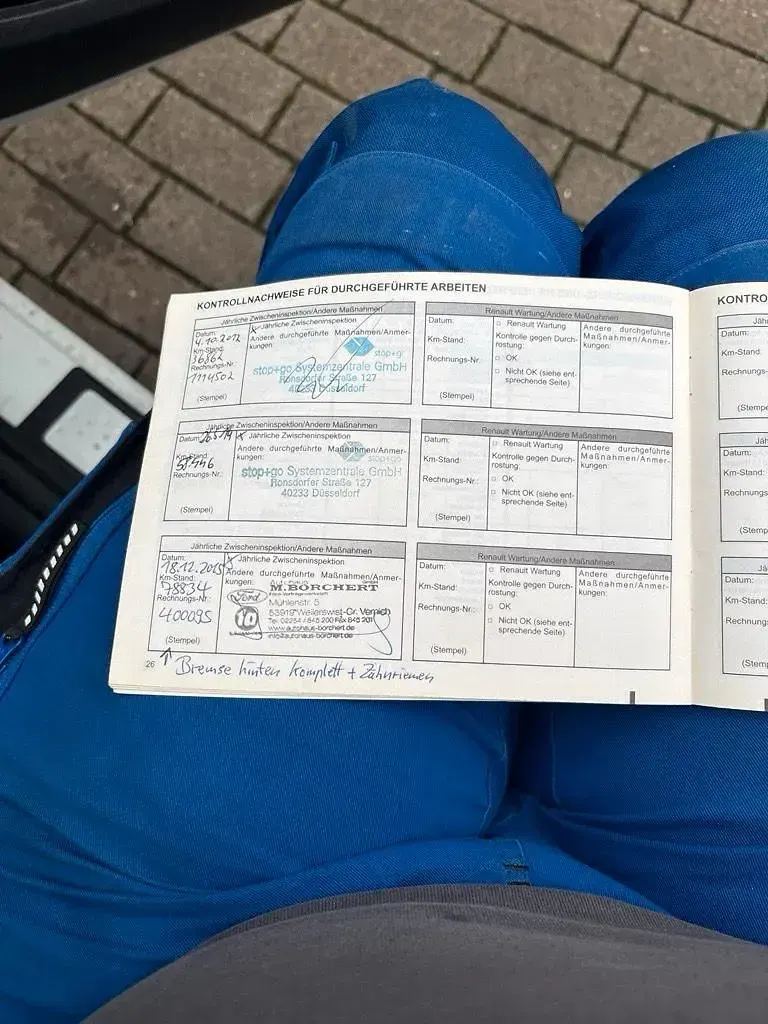 KONTROLLNACHWEISE FÜR DURCHGEFÜHRTE ARBEITEN
Jährliche Zwischeninspektion/Andere Maßnahmen
Datum:
4.10.2012
Km-Stand:
36862
Rechnungs-Nr.:
1114502
(Stempel)
x Jährliche Zwischeninspektion
Andere durchgeführte Maßnahmen/Anmer-
kungen:
stop+go
stop+go Systemzentrale GmbH
Ronsdorfer Straße 127
40233 Düsseldorf
Renault Wartung/Andere Maßnahmen
Datum:
Km-Stand:
Rechnungs-Nr.:
(Stempel)
Renault Wartung
Kontrolle gegen Durch-
rostung:
OK
Nicht OK (siehe ent-
sprechende Seite)
Andere durchgeführte
Maßnahmen/Anmer-
kungen:
Jährliche Zwischeninspektion/Andere Maßnahmen
Datum:
Km-Stand:
Rechnungs-Nr.:
(Stempel)
x Jährliche Zwischeninspektion
Andere durchgeführte Maßnahmen/Anmer-
kungen:
stop+go
stop+go Systemzentrale GmbH
Ronsdorfer Straße 127
40233 Düsseldorf
Renault Wartung/Andere Maßnahmen
Datum:
Km-Stand:
Rechnungs-Nr.:
(Stempel)
Renault Wartung
Kontrolle gegen Durch-
rostung:
OK
Nicht OK (siehe ent-
sprechende Seite)
Andere durchgeführte
Maßnahmen/Anmer-
kungen:
Jährliche Zwischeninspektion/Andere Maßnahmen
Datum:
18.12.2015
Km-Stand:
78834
Rechnungs-Nr.:
400095
(Stempel)
x Jährliche Zwischeninspektion
Andere durchgeführte Maßnahmen/Anmer-
kungen:
M.BORCHERT
Ford
Mühlenstr. 5
53919 Weilerswist-Gr. Vernich
Tel. 02254 / 845 200 Fax 845 201
www.autohaus-borchert.de
info@autohaus-borchert.de
Renault Wartung/Andere Maßnahmen
Datum:
Km-Stand:
Rechnungs-Nr.:
(Stempel)
Renault Wartung
Kontrolle gegen Durch-
rostung:
OK
Nicht OK (siehe ent-
sprechende Seite)
Andere durchgeführte
Maßnahmen/Anmer-
kungen:
26 ↑ Bremse hinten komplett + Zahnriemen
KONTRO
Datum:
Km-Stand:
Rechnungs-
(Stemp
Datum:
Km-Stand:
Rechnungs
(Stemp
Datum:
Km-Stand:
Rechnungs
(Stemp